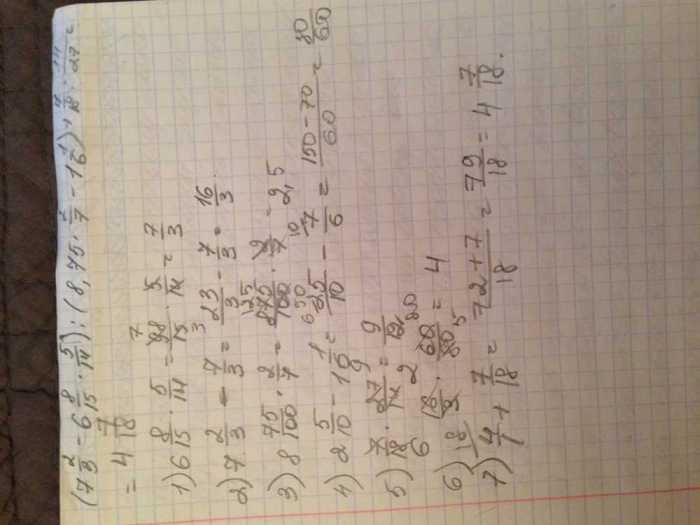 (7 2/3 - 6 8/15 · 5/14) : (8,75 · 2/7 - 1 1/6) + 7/18 : 14/27 =
= 4 7/18
1) 6 8/15 · 5/14 = 98/15 · 5/14 = 7/3
2) 7 2/3 - 7/3 = 23/3 - 7/3 = 16/3.
3) 8 75/100 · 2/7 = 875/100 · 2/7 = 2,5
4) 2 5/10 - 1 1/6 = 25/10 - 7/6 = (150-70)/60 = 80/60
5) 7/18 · 27/14 =
6) 16/3 · 60/80 = 4
7) 4/1 + 7/18 = (72+7)/18 = 79/18 = 4 7/18.